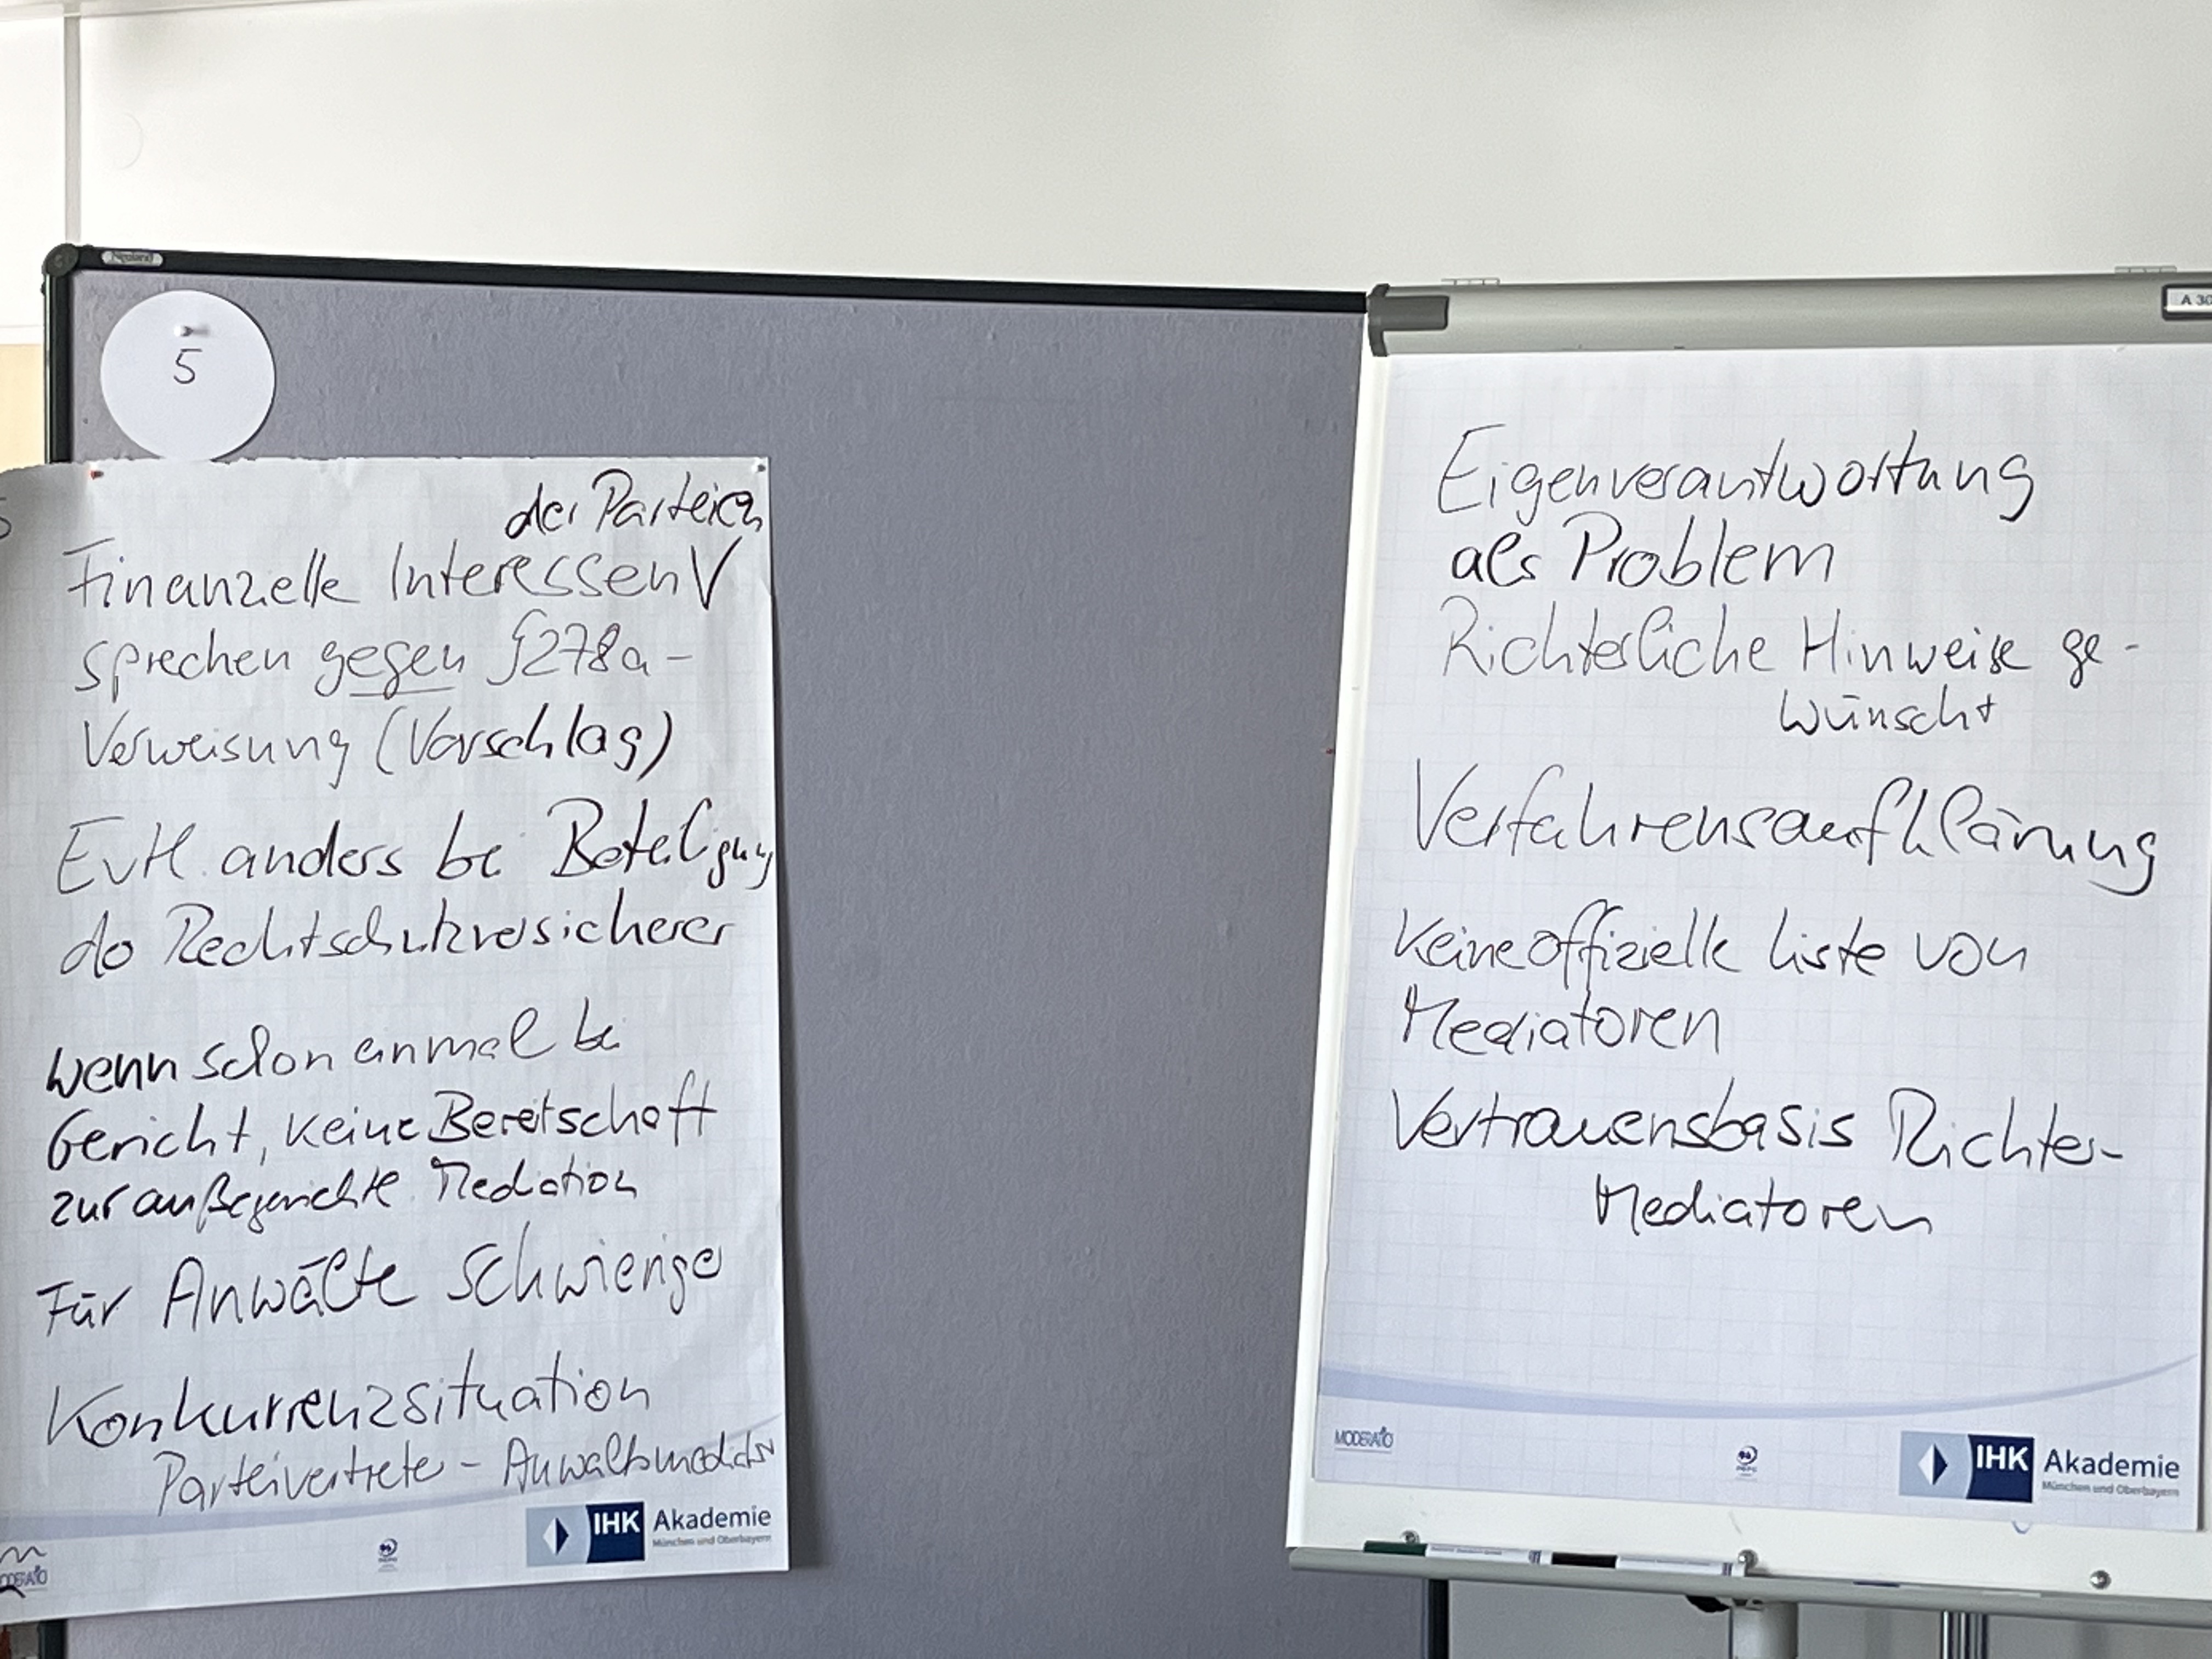 Neuland
5
der Parteien
Finanzielle Interessen V
sprechen gegen §278a-
Verweisung (Vorschlag)
Evtl. anders bei Beteiligung
der Rechtschutzversicherer
Wenn schon einmal bei
Gericht, keine Bereitschaft
zur außergerichtl. Mediation
Für Anwälte schwierige
Konkurrenzsituation
Parteivertreter - Anwaltsmediator
IHK Akademie
München und Oberbayern
A 30
Eigenverantwortung
als Problem
Richterliche Hinweise ge-
wünscht
Verfahrensaufklärung
Keine offizielle Liste von
Mediatoren
Vertrauensbasis Richter-
Mediatoren
MODERATIO
IHK Akademie
München und Oberbayern